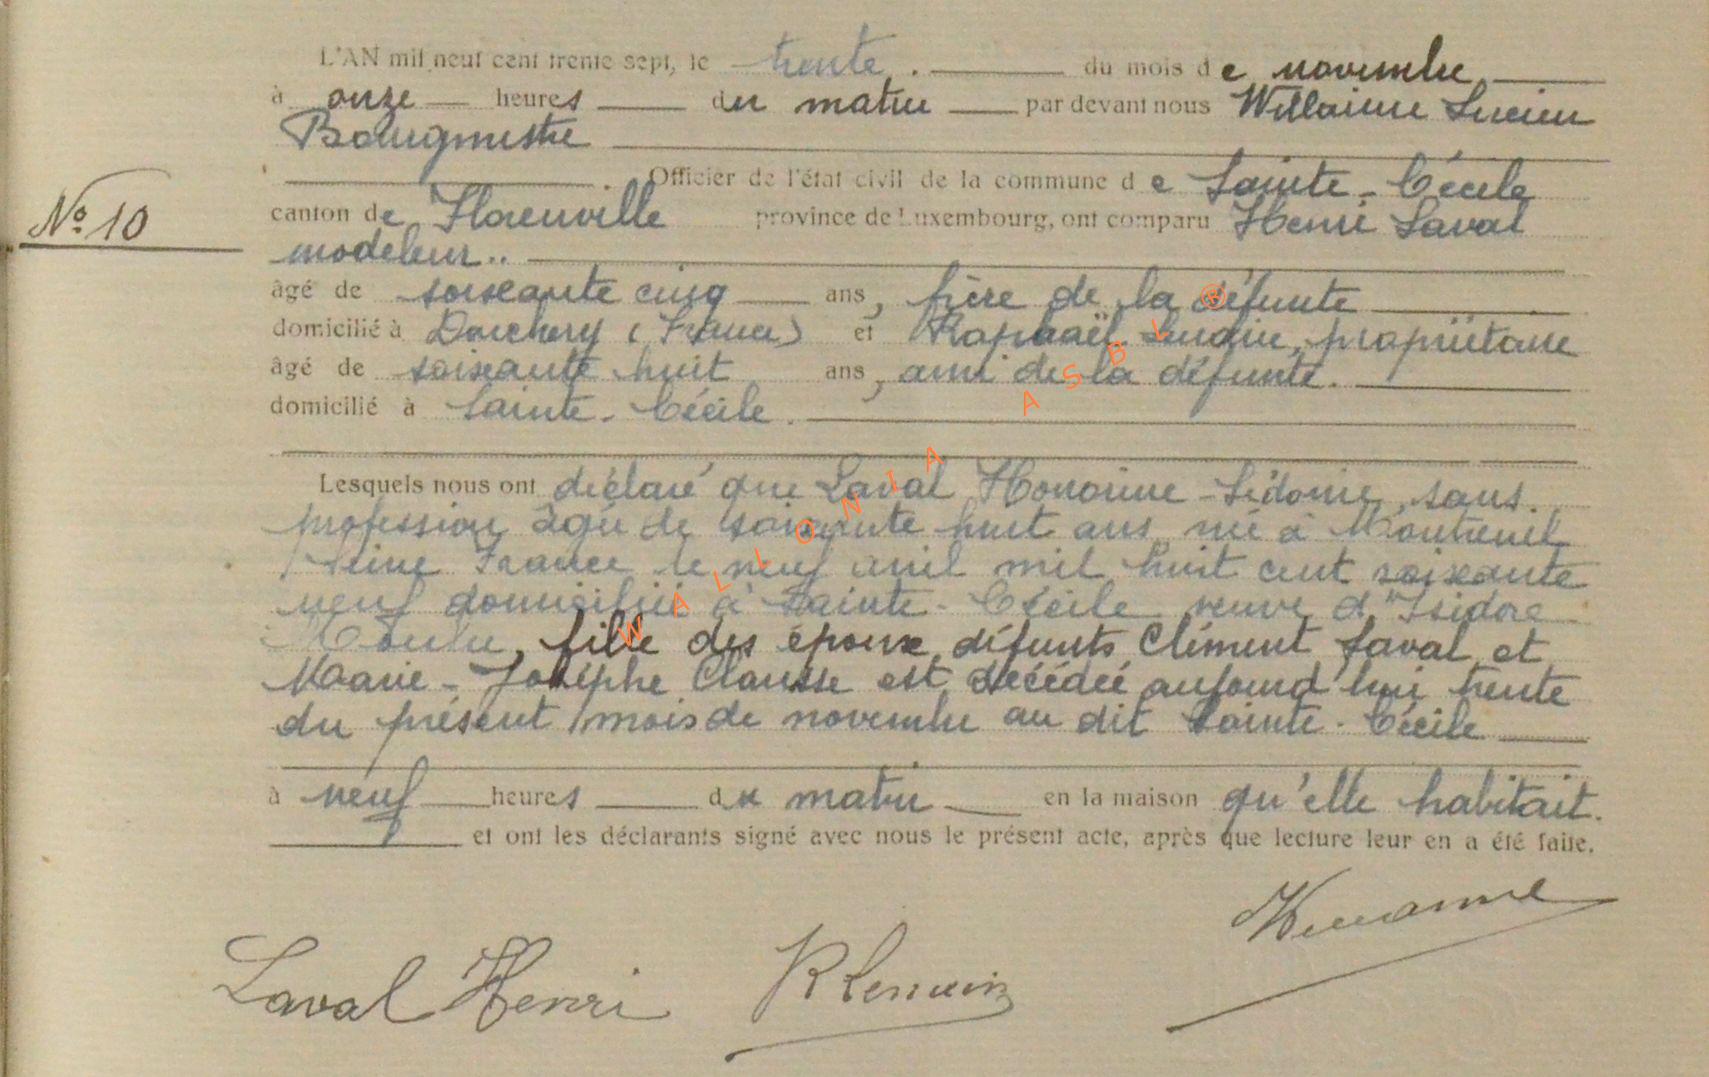 L'AN mil neuf cent trente sept, le trente. du mois de novembre
à onze heures du matin par devant nous Willaime Lucien
Bourgmestre
Officier de l'état civil de la commune de Sainte-Cécile
N° 10
canton de Florenville province de Luxembourg, ont comparu Henri Laval
modeleur..
âgé de soixante cinq ans, frère de la défunte
domicilié à Donchery (France) et Raphaël propriétaire
âgé de soixante huit ans, ami de la défunte.
domicilié à Sainte-Cécile.
Lesquels nous ont déclaré que Laval Honorine-Sidonie, sans
profession âgée de soixante huit ans née à Montreuil
Seine France le neuf avril mil huit cent soixante
neuf domiciliée à Sainte-Cécile veuve d'Isidore
fille des époux défunts Clément Laval et
Marie-Josèphe Clausse est décédée aujourd'hui trente
du présent mois de novembre au dit Sainte-Cécile
à neuf heures du matin en la maison qu'elle habitait.
et ont les déclarants signé avec nous le présent acte, après que lecture leur en a été faite.
Laval Henri
WALLONIA ASBL ®